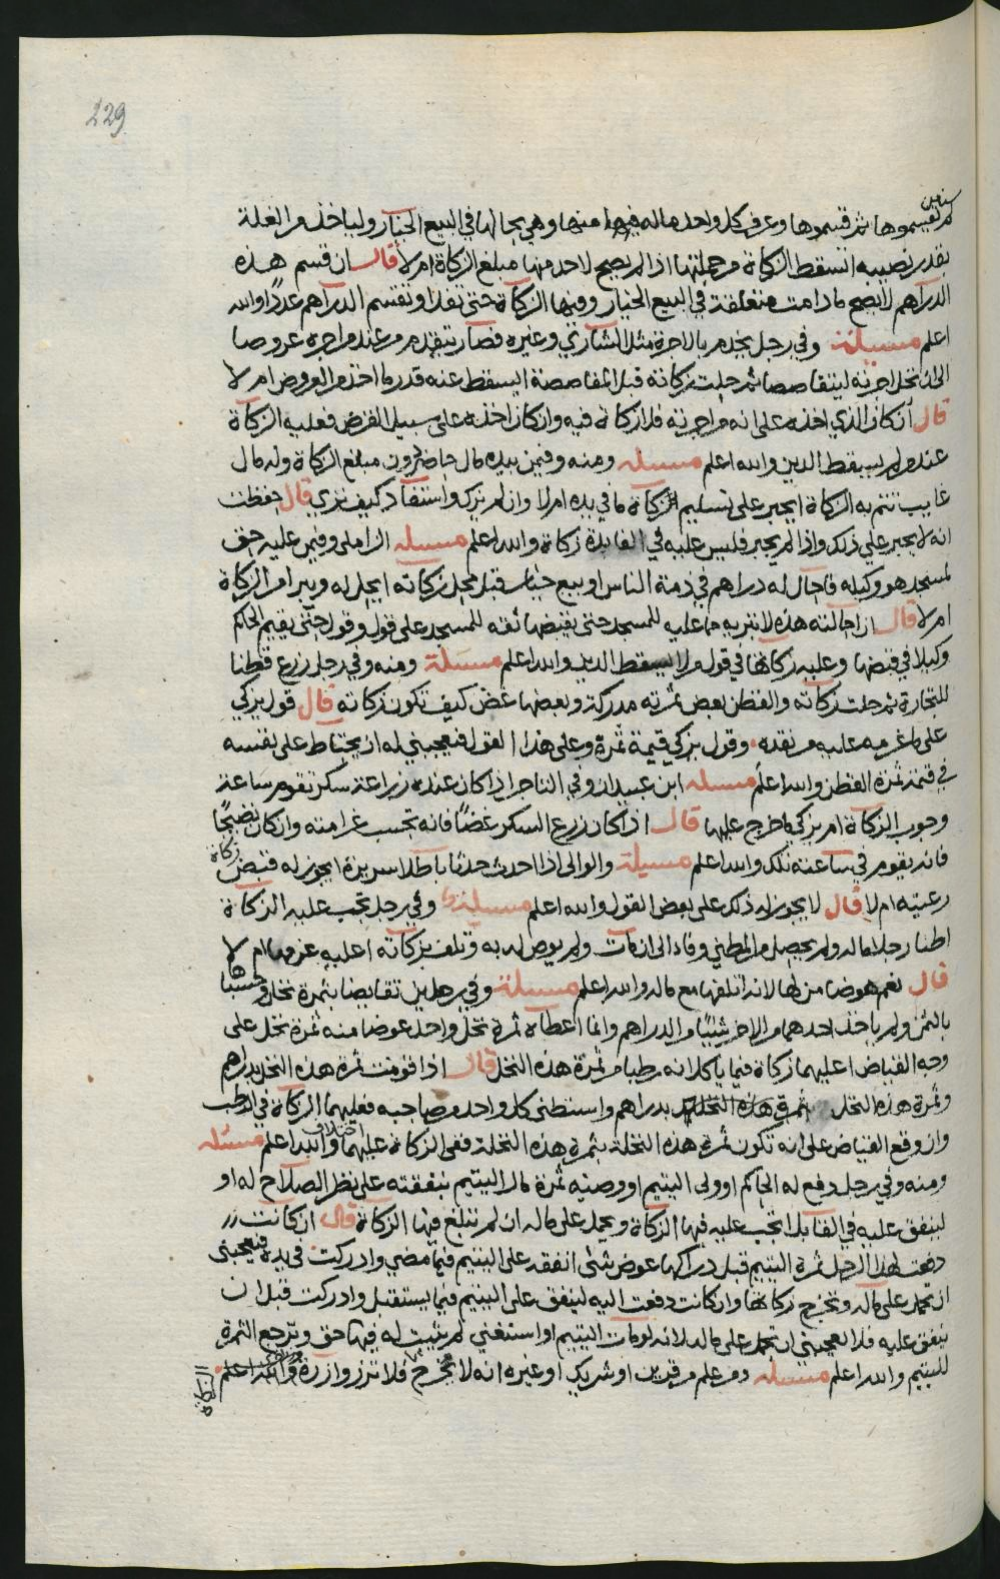 229
لم يقسموها ثم قسموها وعرف كل واحد ماله منها وهي بحالها في البيع الخيار ولياخذ من الغلة
بقدر نصيبه اتسقط الزكاة من جملتها اذا لم يصح لاحد منها مبلغ الزكاة ام لا قال ان قسم هذه
الدراهم لا يصح ما دامت متعلقة في البيع الخيار وفيها الزكاة حتى تفدا وتقسم الدراهم عددًا والله
اعلم مسيلة وفي رجل يخدم بالاجرة مثل الشاري وغيره فصار يتقدم من عنده من اجره عروضا
الى ان تحل اجرته ليتقاصصا ثم حلت زكاته قبل المقاصصة ايسقط عنه قدر ما اخذ من العروض ام لا
قال ان كان الذي اخذه على انه من اجرته فلا زكاة فيه وان كان اخذه على سبيل القرض فعليه الزكاة
عنده ولم يسقط الدين والله اعلم مسيله ومنه وفيمن بيده مال حاضر دون مبلغ الزكاة وله مال
غايب تتم به الزكاة ايجبر على تسليم الزكاة ما في يده ام لا وان لم يزك واستفاد كيف ترى قال حفظت
انه لا يجبر على ذلك واذا لم يجبر فليس عليه في الفايدة زكاة والله اعلم مسيله الزاملي وفيمن عليه حق
لمسجد هو وكيله فاحال له دراهم في ذمة الناس او بيع خيار قبل محل زكاته ايحل له ويبرا من الزكاة
ام لا قال ان احالته هذه لا تبريه مما عليه للمسجد حتى يقبضها ثقه للمسجد على قول وقول حتى يقيم الحاكم
وكيلا في قبضها وعليه زكاتها في قول من لا يسقط الدين والله اعلم مسيلة ومنه وفي رجل زرع قطنا
للتجارة ثم حلت زكاته والقطن بعض ثمرته مدركة وبعضها غض كيف تكون زكاته قال قول يزكي
على ما غرمه عليه من نقده وقول يزكي قيمة ثمرة وعلى هذا القول فيعجبني له ان يحتاط على نفسه
في قيمة ثمرة القطن والله اعلم مسيله ابن عبيدان وفي التاجر اذا كان عنده زراعة سكر تقوم ساعة
وجوب الزكاة ام يزكي ما خرج عليها قال اذا كان زرع السكر غضًا فانه تحسب غرامته وان كان نضيجًا
فانه يقوم في ساعته تلك والله اعلم مسيلة والوالي اذا احدث حدثا باطلا سريرة ايجوز له قبض زكاة
رعيته ام لا قال لا يجوز له ذلك على بعض القول والله اعلم مسيلة وفي رجل تجب عليه الزكاة
اطنا رجلا ماله ولم يحصل من المطني وفاء الى ان مات ولم يوص له به وتلف بزكاته اعليه غرمها ام لا
قال نعم هو ضامن لها لانه اتلفها مع ماله والله اعلم مسيلة وفي رجلين تقايضا بثمرة نخل وحسبها
بالثمن ولم ياخذ احدهما من الاخر شيئًا من الدراهم وانما اعطاه ثمرة نخل واخذ عوضا منه ثمرة نخل على
وجه القياض اعليهما زكاة فيما ياكلانه رطبا من ثمرة هذه النخل قال اذا قومت ثمرة هذه النخل بدراهم
وثمرة هذه النخل بدراهم واستطنى كل واحد من صاحبه فعليهما الزكاة في الرطب
وان وقع القياض على انه تكون ثمرة هذه النخلة بثمرة هذه النخلة ففي الزكاة عليهما اختلاف والله اعلم مسئله
ومنه وفي رجل دفع له الحاكم او ولي اليتيم او وصيه ثمرة مال اليتيم بنفقته على نظر الصلاح له او
لينفق عليه في القابل اتجب عليه فيها الزكاة ويحمل على ماله ان لم تبلغ فيها الزكاة قال ان كانت
دفعت لهذا الرجل ثمرة اليتيم قبل دراكها عوض شي انفقه على اليتيم فيما مضى وادركت في يده فيعجبني
ان تحمل على ماله وتخرج زكاتها وان كانت دفعت اليه لينفق على اليتيم فيما يستقبل وادركت قبل ان
ينفق عليه فلا يعجبني ان تحمل على ماله لانه لو مات اليتيم او استغني لم يثبت له فيها حق وترجع الثمرة
لليتيم والله اعلم مسيله ومن علم من قرين او شريك او غيره انه لا يخرج فلا تزر وازرة والله اعلم
الزكاة